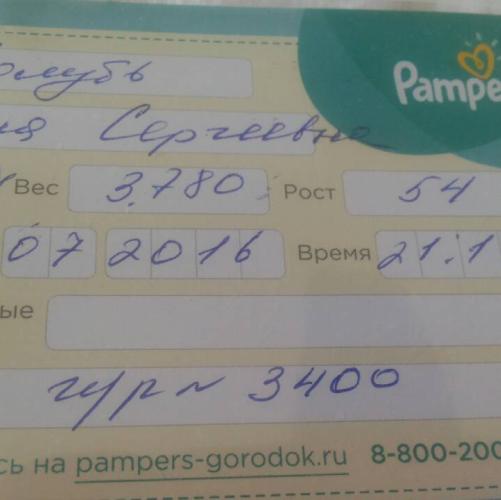 Pampers
олубь
ия Сергеевна
Вес 3.780 Рост 54
07 2016 Время 21.1
ые
3400
сь на pampers-gorodok.ru 8-800-200